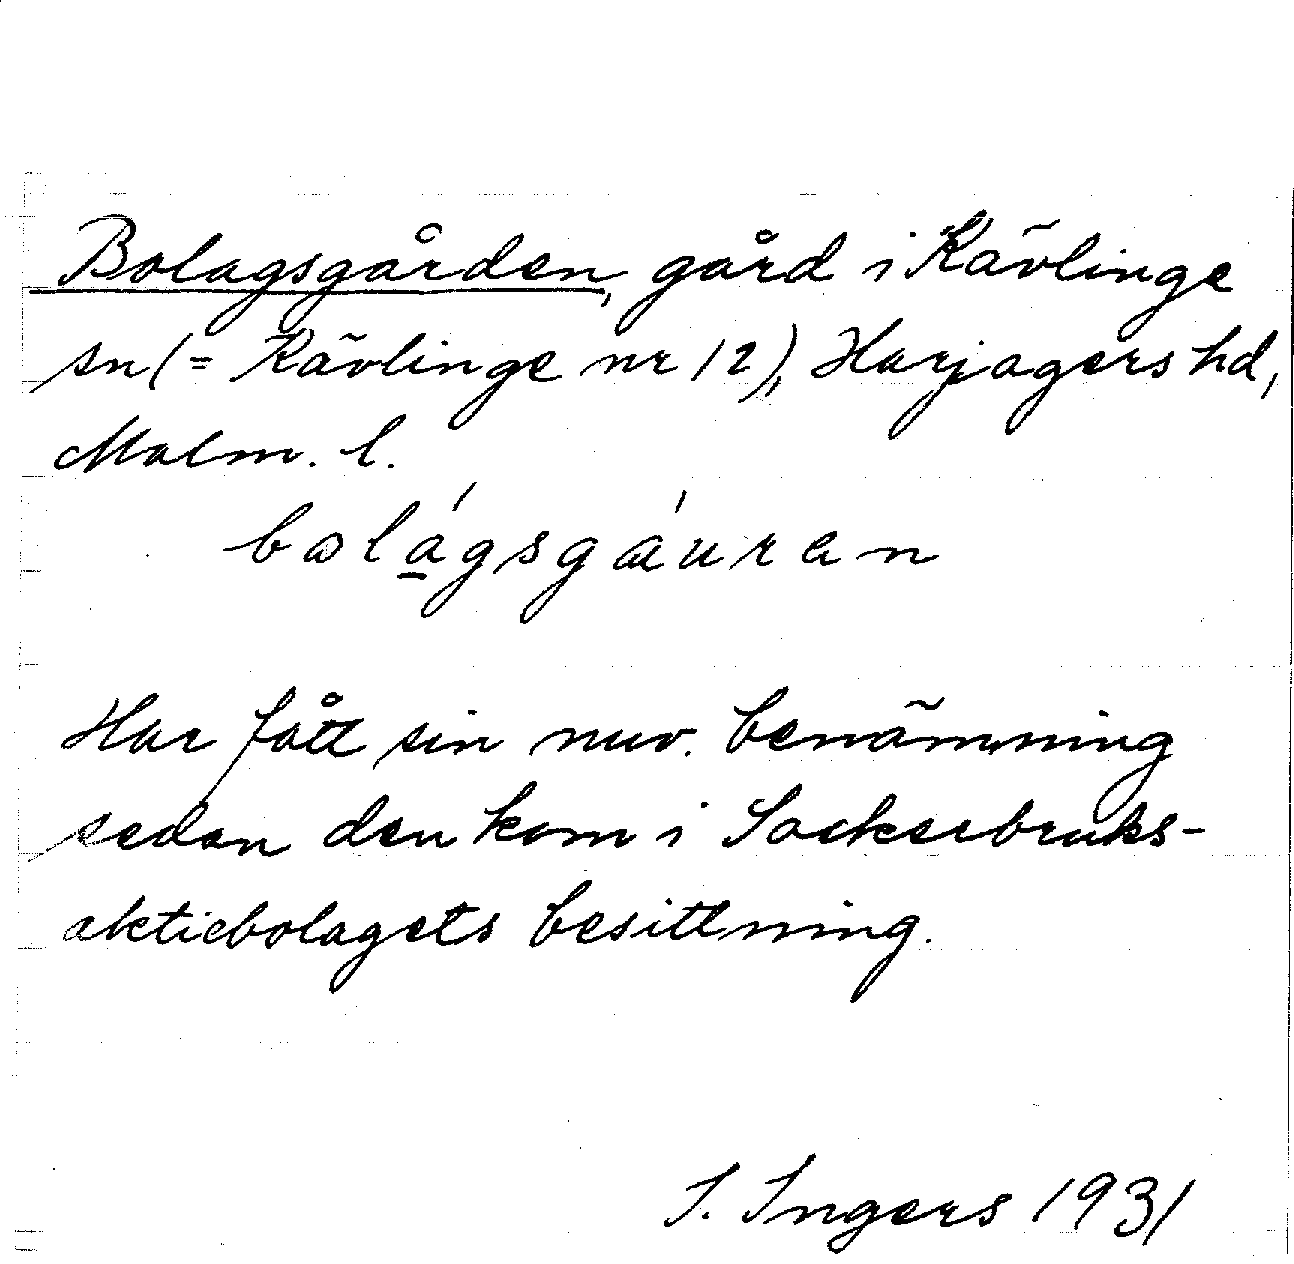 Bolagsgården, gård i Kävlinge
sn (= Kävlinge nr 12), Harjagers hd,
Malm. l.
bolágsgáuren
Har fått sin nuv. benämning
sedan den kom i Sockerbruks-
aktiebolagets besittning.
I. Ingers 1931